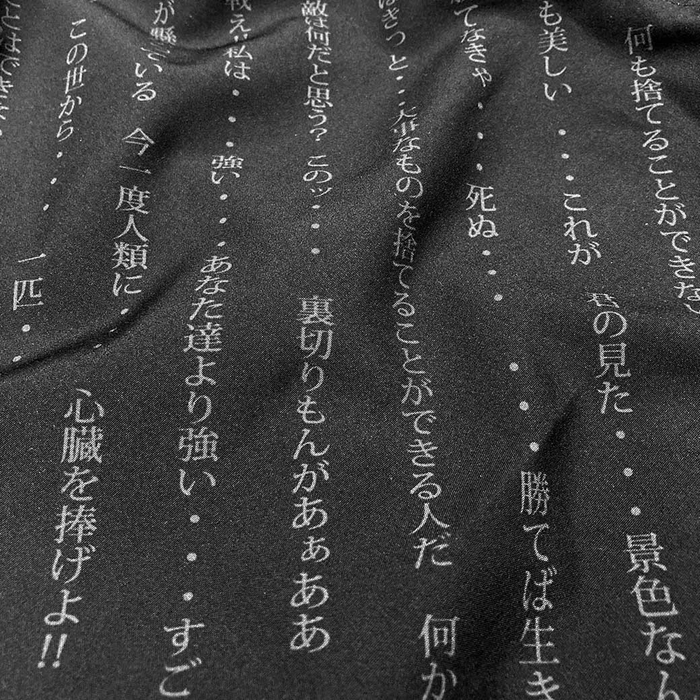 何も捨てることができな
も美しい ・・・これが 君の見た・・・景色なん
てなきゃ・・・死ぬ・・・ ・・・勝てば生き
はきっと・・・大事なものを捨てることができる人だ 何か
敵は何だと思う? このッ・・・ 裏切りもんがあぁああ
戦え!私は・・・強い・・・あなた達より強い・・・すご
が懸っている 今一度人類に・・
この世から・・・ 一匹・・ 心臓を捧げよ!!
とはでき